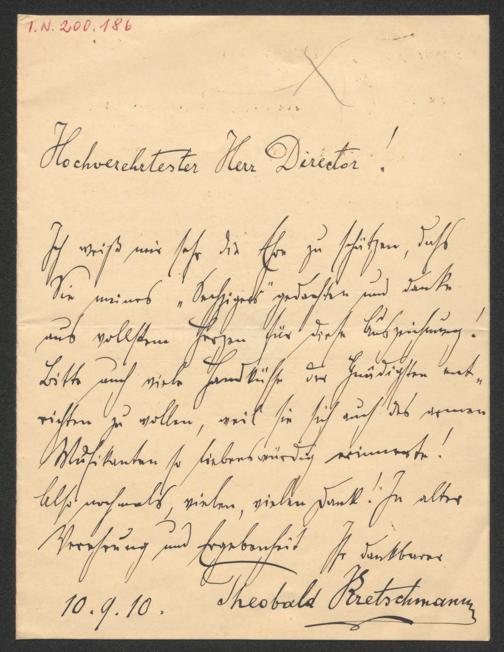 I.N. 200.186
Hochverehrtester Herr Director!
Ich weiß mir sehr die Ehre zu schätzen, dass
Sie meines "Sechzigers" gedachten und danke
aus vollstem Herzen für diese Auszeichnung!
Bitte auch viele Handküsse der Gnädigsten ent-
richten zu wollen, weil sie sich auch des armen
Musikanten so liebenswürdig erinnerte!
Also nochmals, vielen, vielen Dank! In alter
Verehrung und Ergebenheit Ihr dankbarer
10.9.10. Theobald Kretschmann